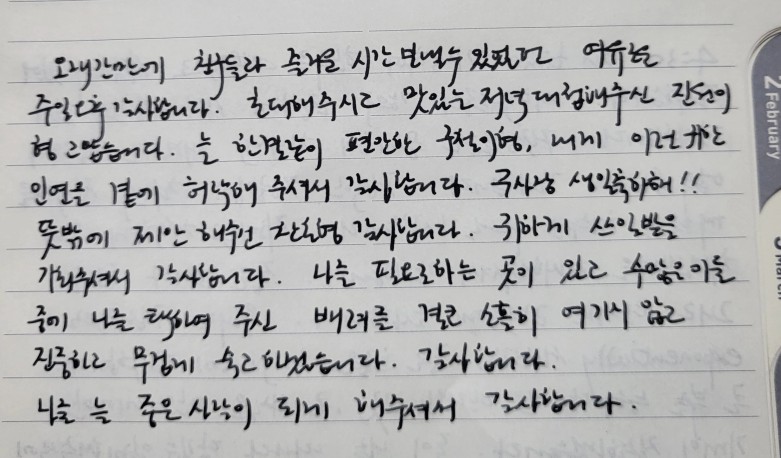 오래간만에 친구들과 즐거운 시간 보낼 수 있었던 여유로운
주일오후 감사합니다. 초대해주시고 맛있는 저녁 대접해주신 진선이
형 고맙습니다. 늘 한결같이 편안한 국철이형, 내게 이런 귀한
인연을 곁에 허락해 주셔서 감사합니다. 생일축하해!!
뜻밖에 제안 해주신 찬호형 감사합니다. 귀하게 쓰일 발을
주셔서 감사합니다. 나를 필요로하는 곳이 있고 수많은 이들
중에 나를 택하여 주신 배려를 결코 소홀히 여기지 않고
집중하고 무겁게 숙고하겠습니다. 감사합니다.
나를 늘 좋은 사람이 되게 해주셔서 감사합니다.
2 February